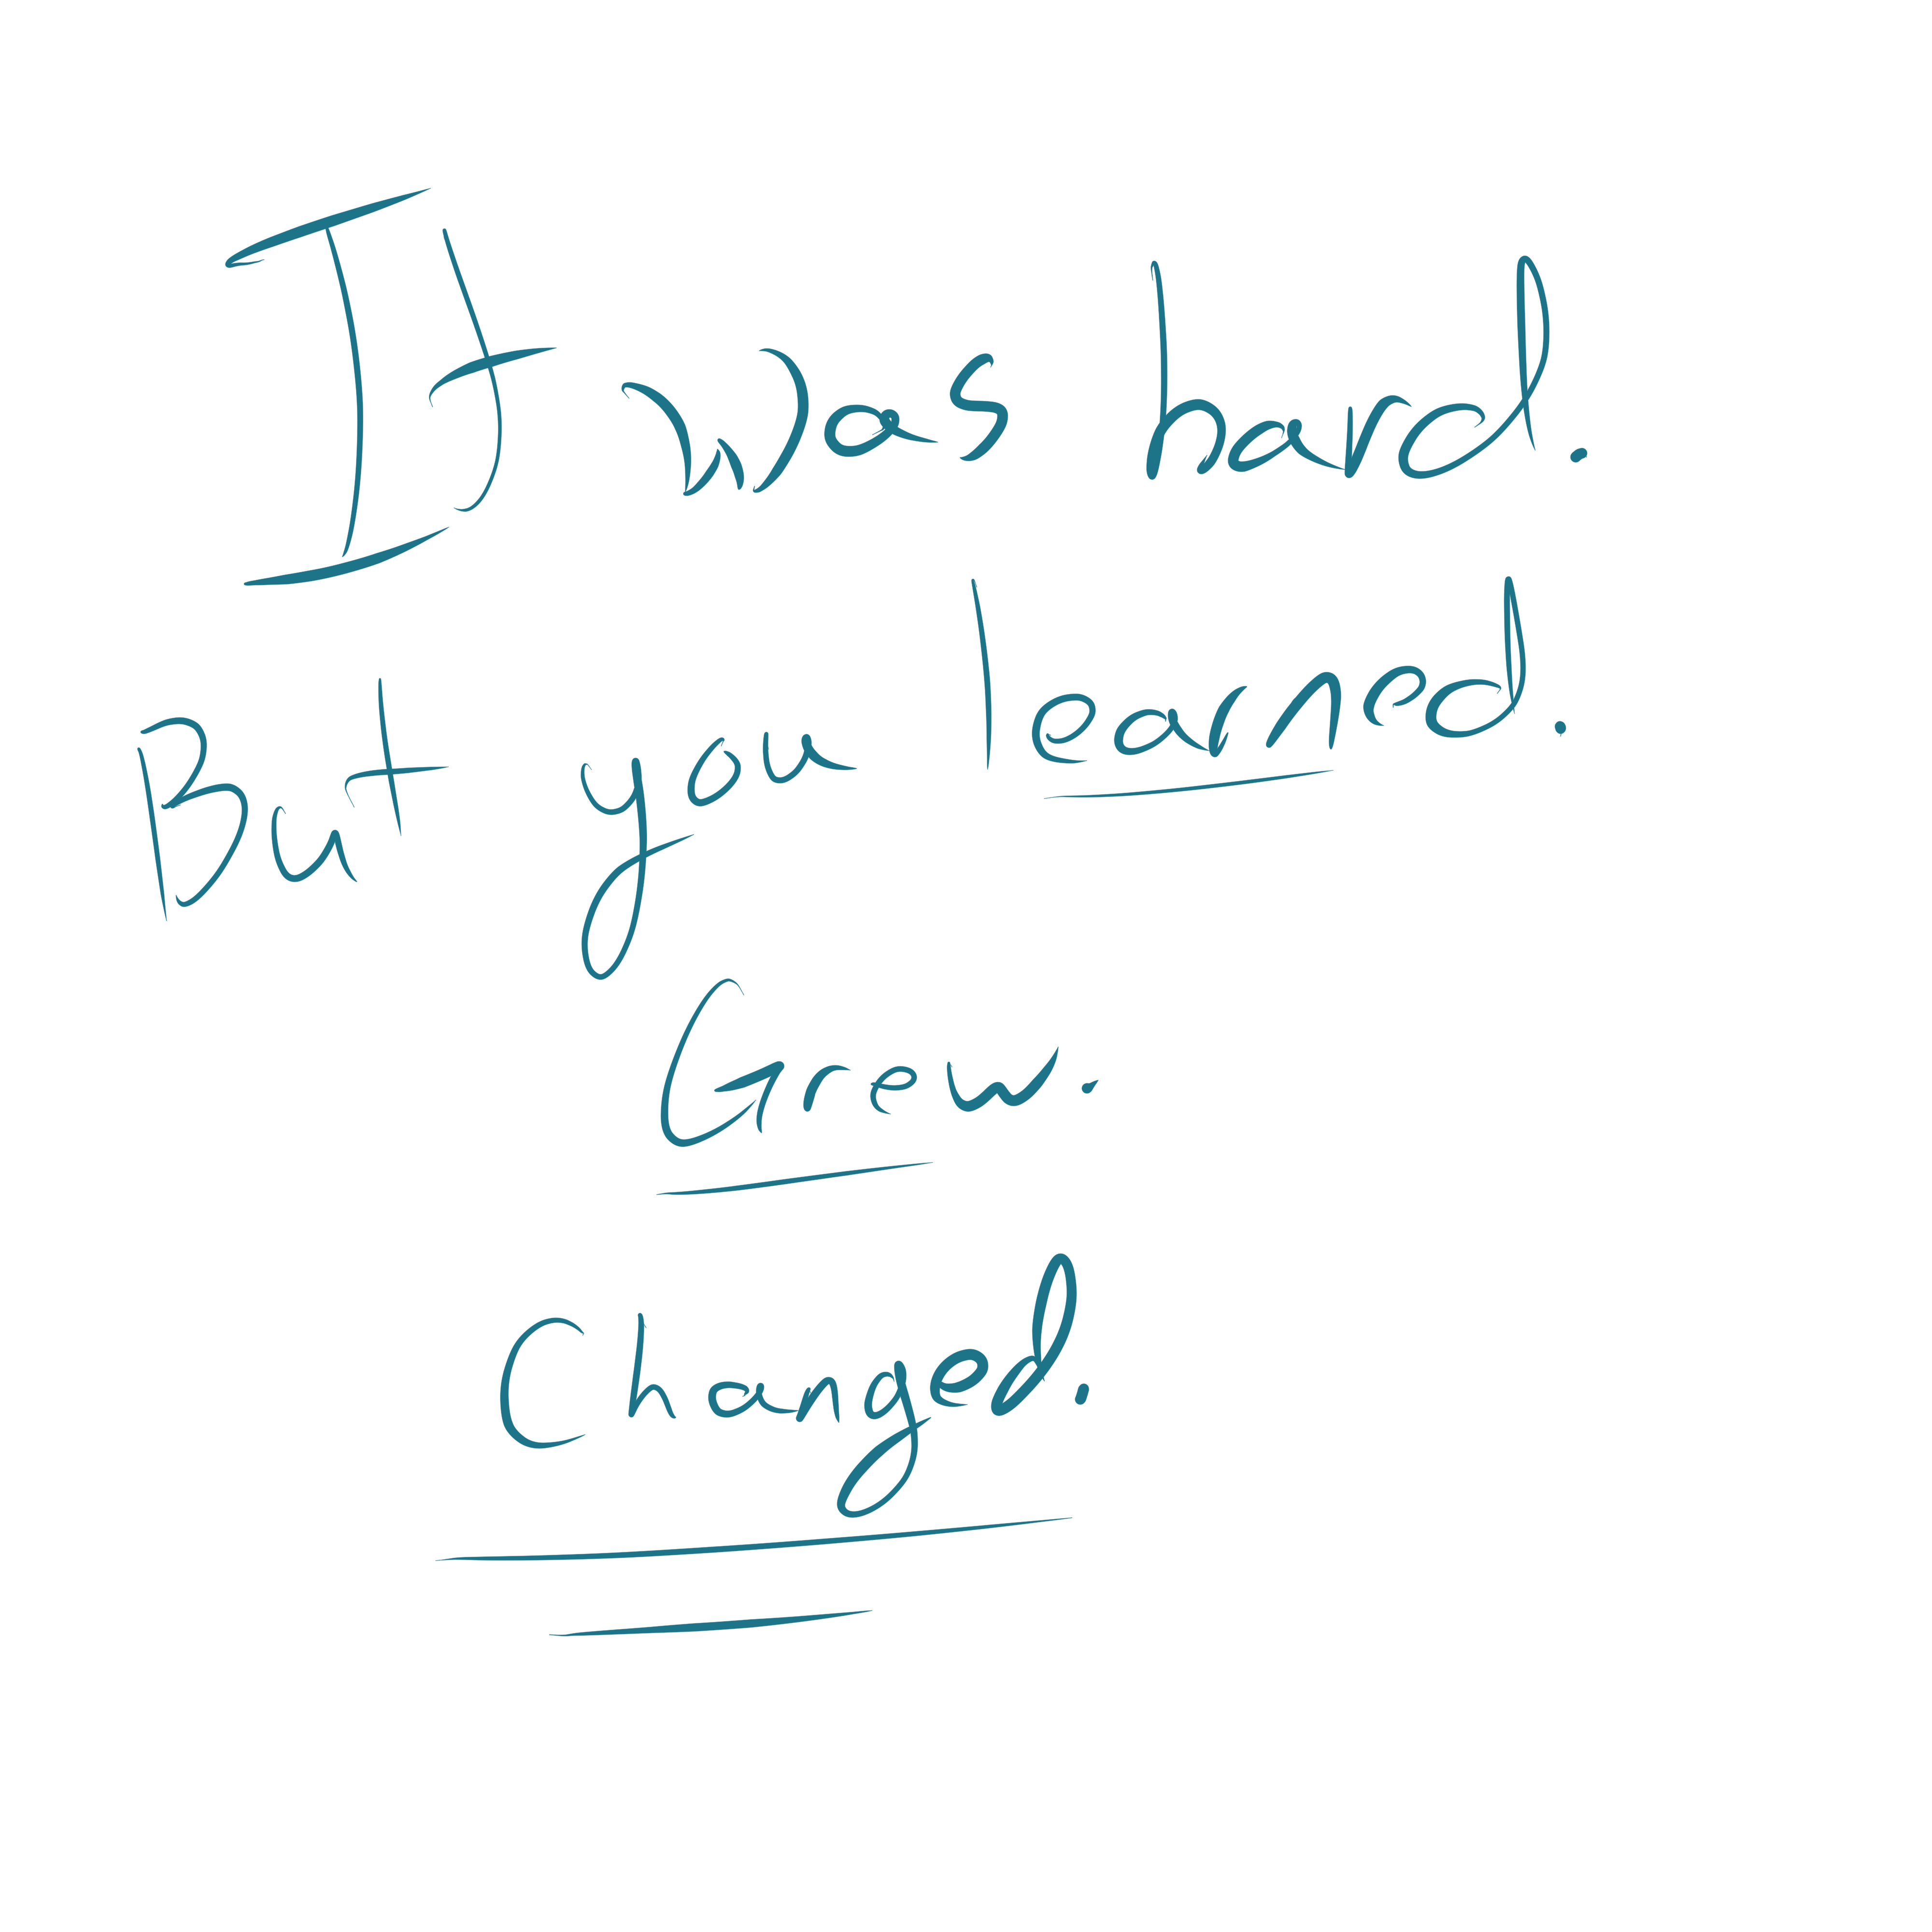 It was hard.
But you learned.
Grew.
Changed.